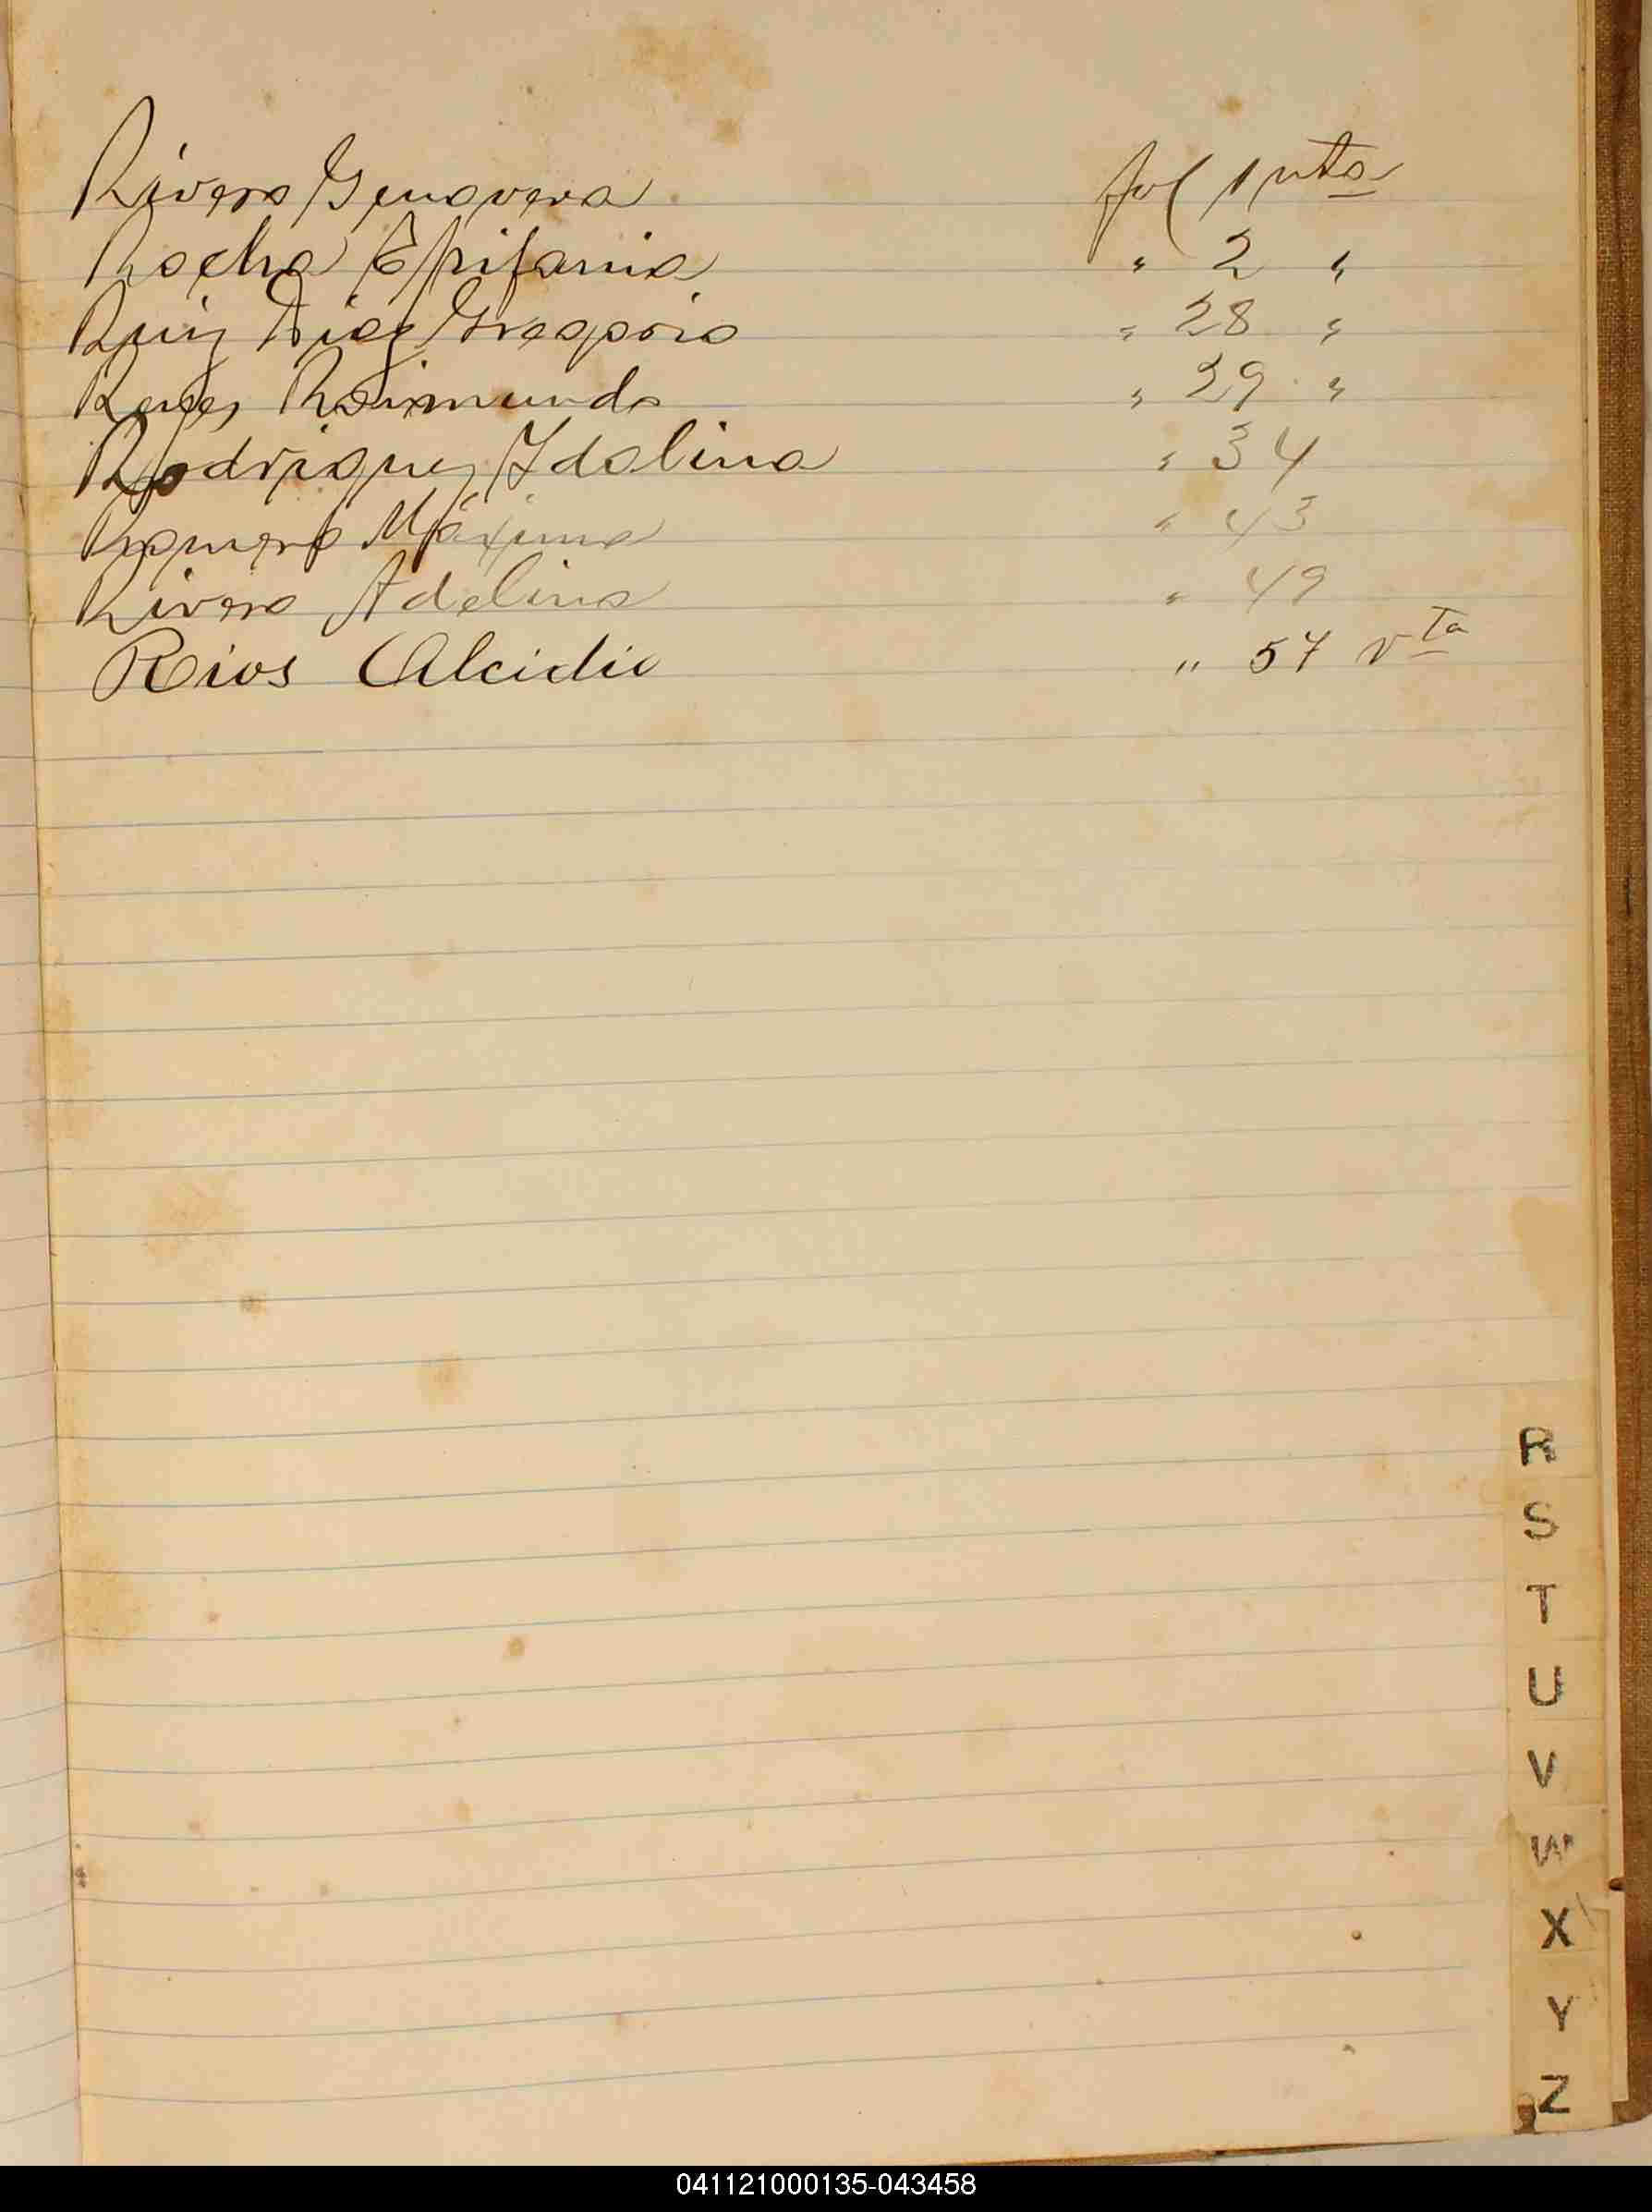 Rivero Genoveva fol 1 vta
Rocha Epifania " 2 "
Ruiz Diaz Gregorio " 28 "
Raimundo " 29 "
Rodriguez Idalina " 34
Romero Máxima " 43
Rivero Adelina " 49
Rios Alcidio " 57 vta
R
S
T
U
V
W
X
Y
Z
041121000135-043458